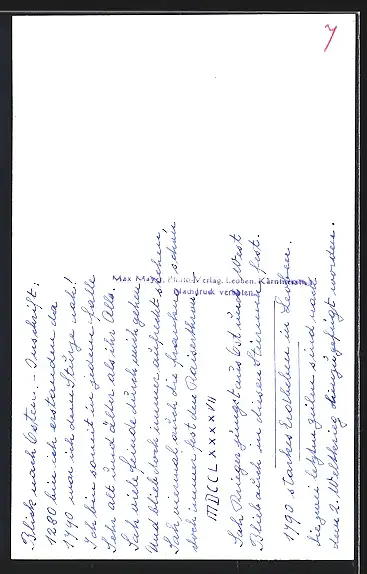 Blick nach Osten. - Inschrift:
1280 bin ich erstanden da
1790 war ich dem Sturze nah!
Ich bin somit in jedem Falle
Sehr alt und älter als ihr alle.
Ich viele Feinde durch mich gehen
Und blieb doch immer aufrecht stehen,
Sah niemal auch die
doch immer fest den Kaiserthurm
MDCCLXXXXVII
Sah Krieger jüngst aus Ost und West
Blieb auch in diesen Stürmen fest.
1790 starkes Erdbeben in Leoben.
die letzten Zeilen sind nach
dem 2. Weltkrieg hinzugefügt worden.
Max Mayer, Photo-Verlag, Leoben, Kärntnerstr.
Nachdruck verboten.
7